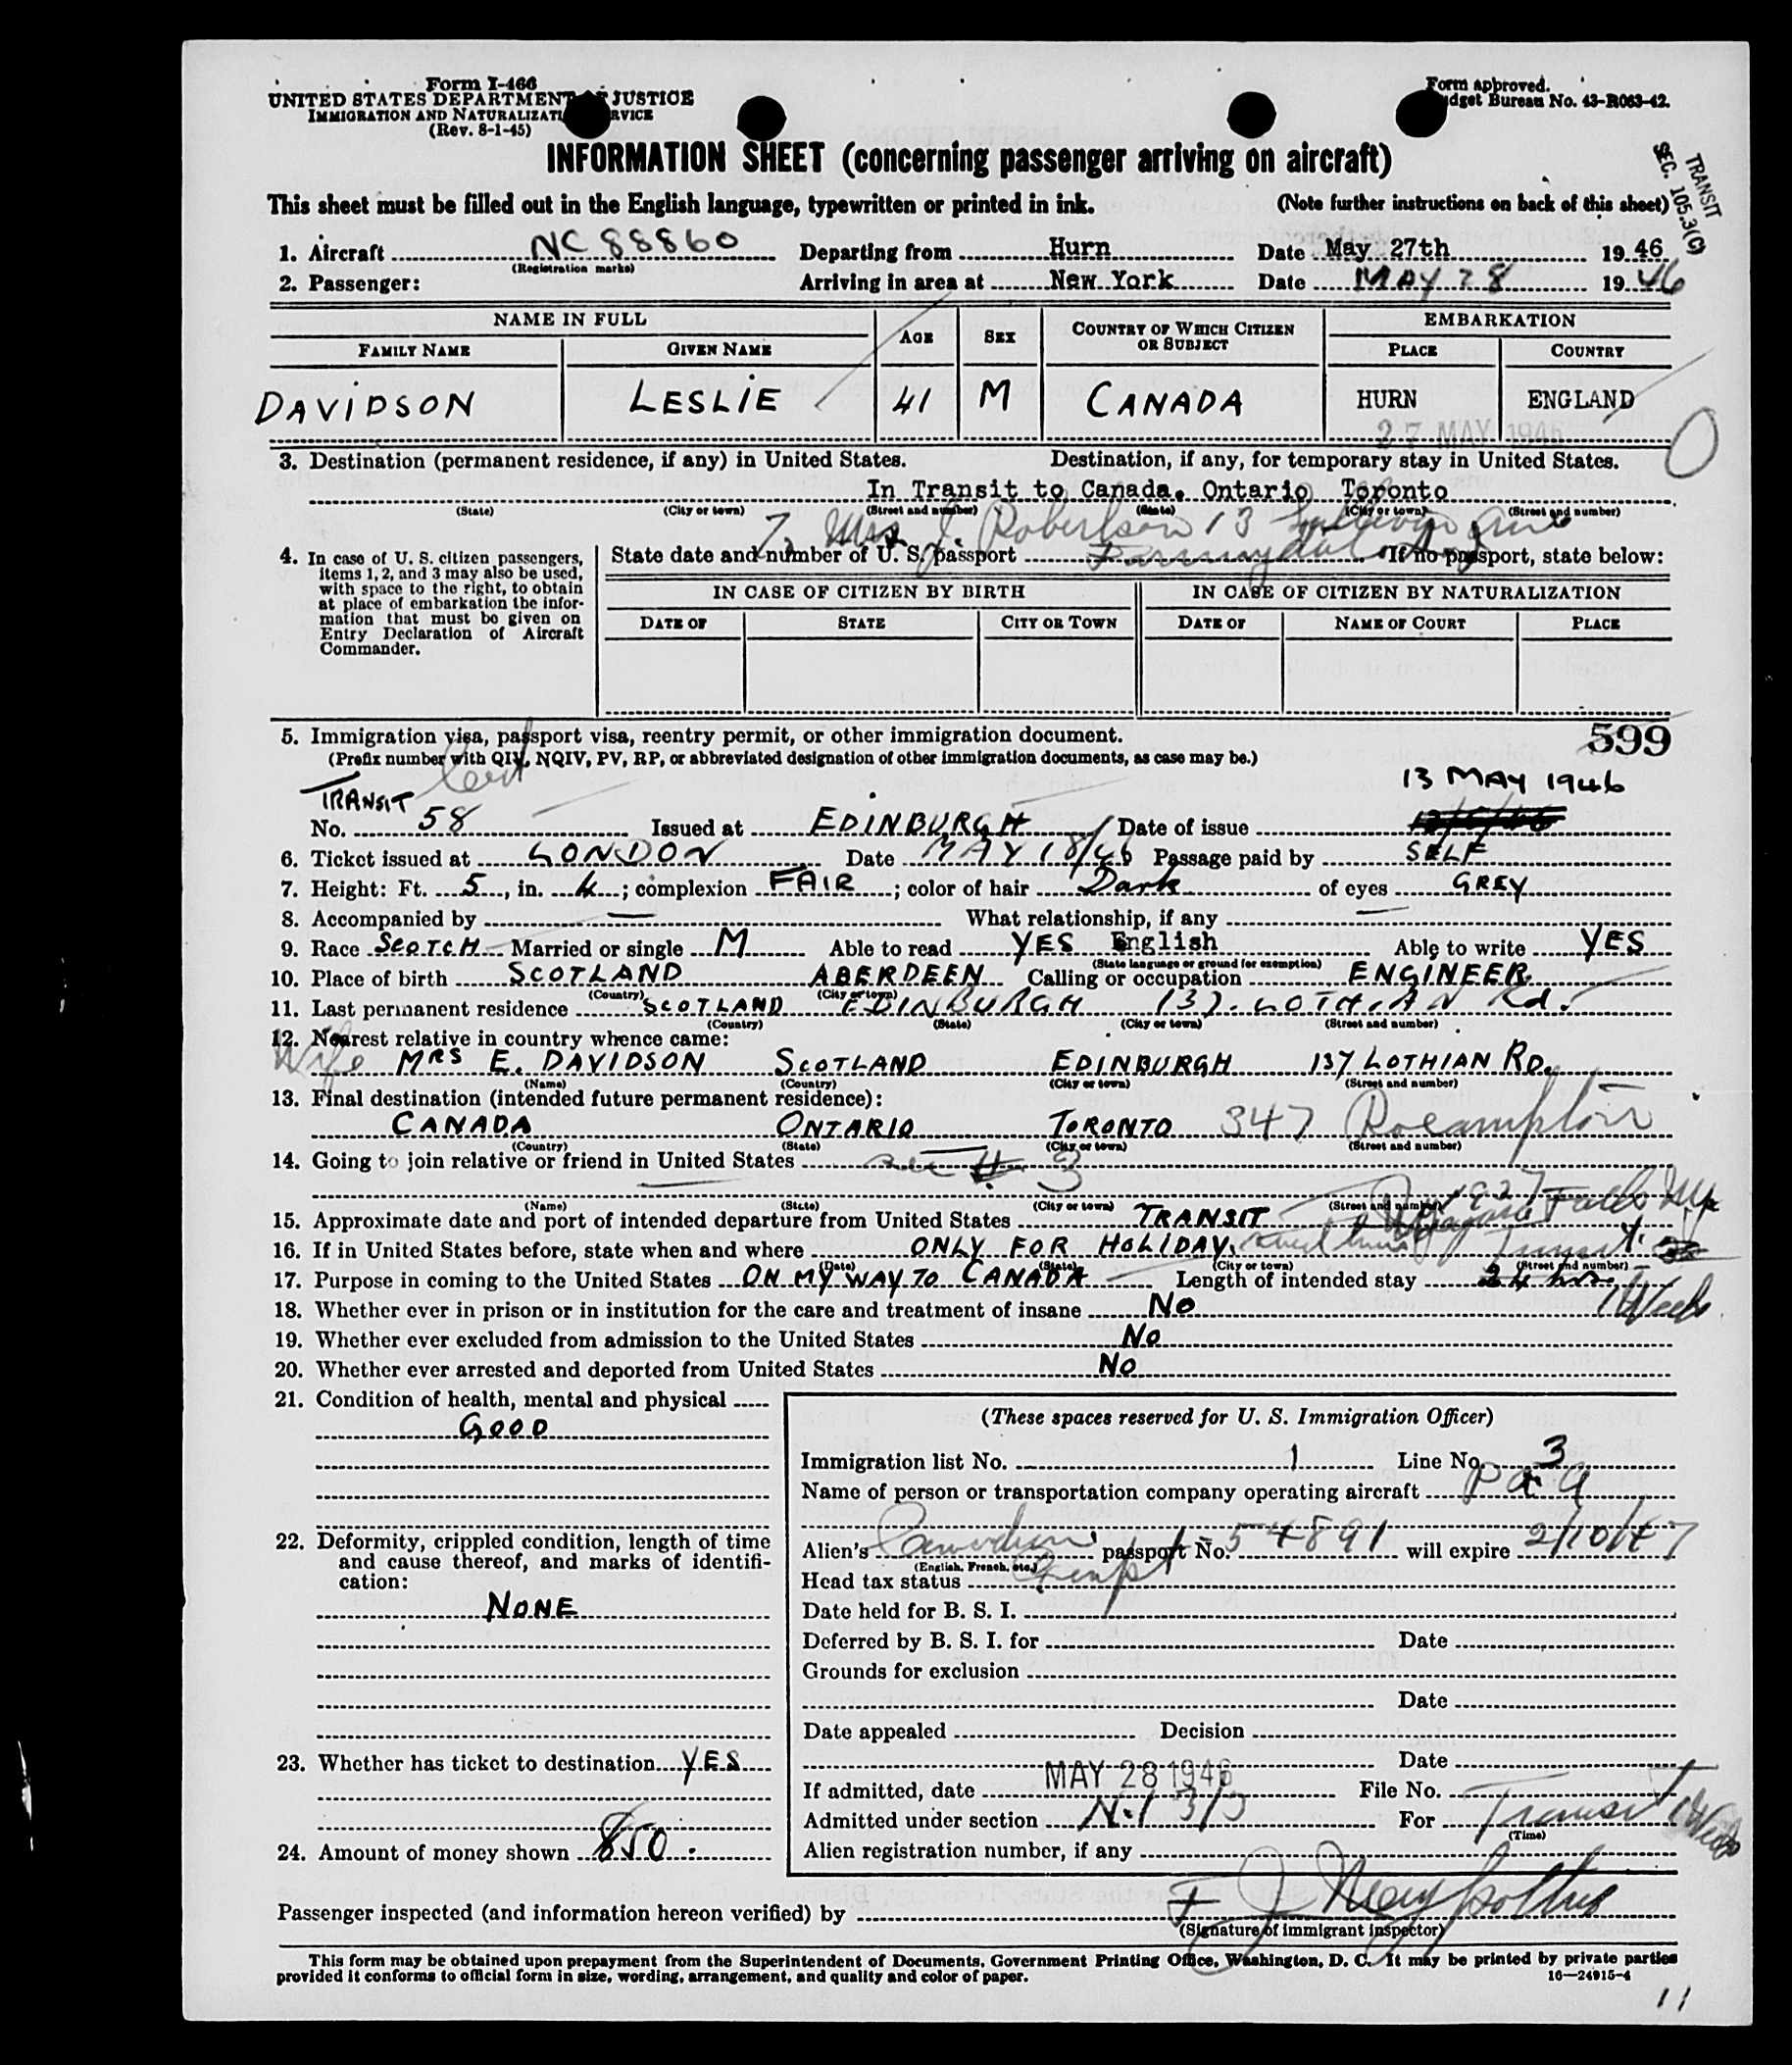 Form I-466
UNITED STATES DEPARTMENT OF JUSTICE
IMMIGRATION AND NATURALIZATION SERVICE
(Rev. 8-1-45)
Form approved.
Budget Bureau No. 43-R063-42.
INFORMATION SHEET (concerning passenger arriving on aircraft)
TRANSIT
SEC. 105.3(C)
This sheet must be filled out in the English language, typewritten or printed in ink. (Note further instructions on back of this sheet)
1. Aircraft NC 88860 Departing from Hurn Date May 27th 1946
(Registration marks)
2. Passenger: Arriving in area at New York Date MAY 28 1946
NAME IN FULL AGE SEX COUNTRY OF WHICH CITIZEN OR SUBJECT EMBARKATION
FAMILY NAME GIVEN NAME PLACE COUNTRY
DAVIDSON LESLIE 41 M CANADA HURN ENGLAND
27 MAY 1946
3. Destination (permanent residence, if any) in United States. Destination, if any, for temporary stay in United States.
In Transit to Canada. Ontario Toronto
(State) (City or town) (Street and number) (State) (City or town) (Street and number)
Mrs J. Robertson 13
4. In case of U. S. citizen passengers, items 1, 2, and 3 may also be used, with space to the right, to obtain at place of embarkation the information that must be given on Entry Declaration of Aircraft Commander.
State date and number of U. S. passport If no passport, state below:
IN CASE OF CITIZEN BY BIRTH IN CASE OF CITIZEN BY NATURALIZATION
DATE OF STATE CITY OR TOWN DATE OF NAME OF COURT PLACE
5. Immigration visa, passport visa, reentry permit, or other immigration document. 599
(Prefix number with QIV, NQIV, PV, RP, or abbreviated designation of other immigration documents, as case may be.)
TRANSIT Cert 13 MAY 1946
No. 58 Issued at EDINBURGH Date of issue
6. Ticket issued at LONDON Date MAY 18/46 Passage paid by SELF
7. Height: Ft. 5, in. 4; complexion FAIR; color of hair Dark of eyes GREY
8. Accompanied by — What relationship, if any —
9. Race SCOTCH Married or single M Able to read YES English Able to write YES
(State language or ground for exemption)
10. Place of birth SCOTLAND ABERDEEN Calling or occupation ENGINEER.
(Country) (City or town)
11. Last permanent residence SCOTLAND EDINBURGH 137. LOTHIAN Rd.
(Country) (State) (City or town) (Street and number)
12. Nearest relative in country whence came:
Wife MRS E. DAVIDSON SCOTLAND EDINBURGH 137 LOTHIAN RD.
(Name) (Country) (City or town) (Street and number)
13. Final destination (intended future permanent residence):
CANADA ONTARIO TORONTO 347
(Country) (State) (City or town) (Street and number)
14. Going to join relative or friend in United States see # 3
(Name) (State) (City or town) (Street and number)
15. Approximate date and port of intended departure from United States TRANSIT
16. If in United States before, state when and where ONLY FOR HOLIDAY.
(Date) (State) (City or town) (Street and number)
17. Purpose in coming to the United States ON MY WAY TO CANADA Length of intended stay 24 hrs. 1 Week
18. Whether ever in prison or in institution for the care and treatment of insane No
19. Whether ever excluded from admission to the United States No
20. Whether ever arrested and deported from United States No
21. Condition of health, mental and physical
GOOD
22. Deformity, crippled condition, length of time and cause thereof, and marks of identification:
NONE
23. Whether has ticket to destination YES
24. Amount of money shown
(These spaces reserved for U. S. Immigration Officer)
Immigration list No. 1 Line No. 3
Name of person or transportation company operating aircraft P a a
Alien's Canadian passport No. 54891 will expire 2/10/47
(English, French, etc.)
Head tax status Exempt
Date held for B. S. I.
Deferred by B. S. I. for Date
Grounds for exclusion
Date
Date appealed Decision
Date
If admitted, date MAY 28 1946 File No.
Admitted under section For Transit 1 Week
(Time)
Alien registration number, if any
Passenger inspected (and information hereon verified) by
(Signature of immigrant inspector)
This form may be obtained upon prepayment from the Superintendent of Documents, Government Printing Office, Washington, D. C. It may be printed by private parties
provided it conforms to official form in size, wording, arrangement, and quality and color of paper. 16—24915-4
11